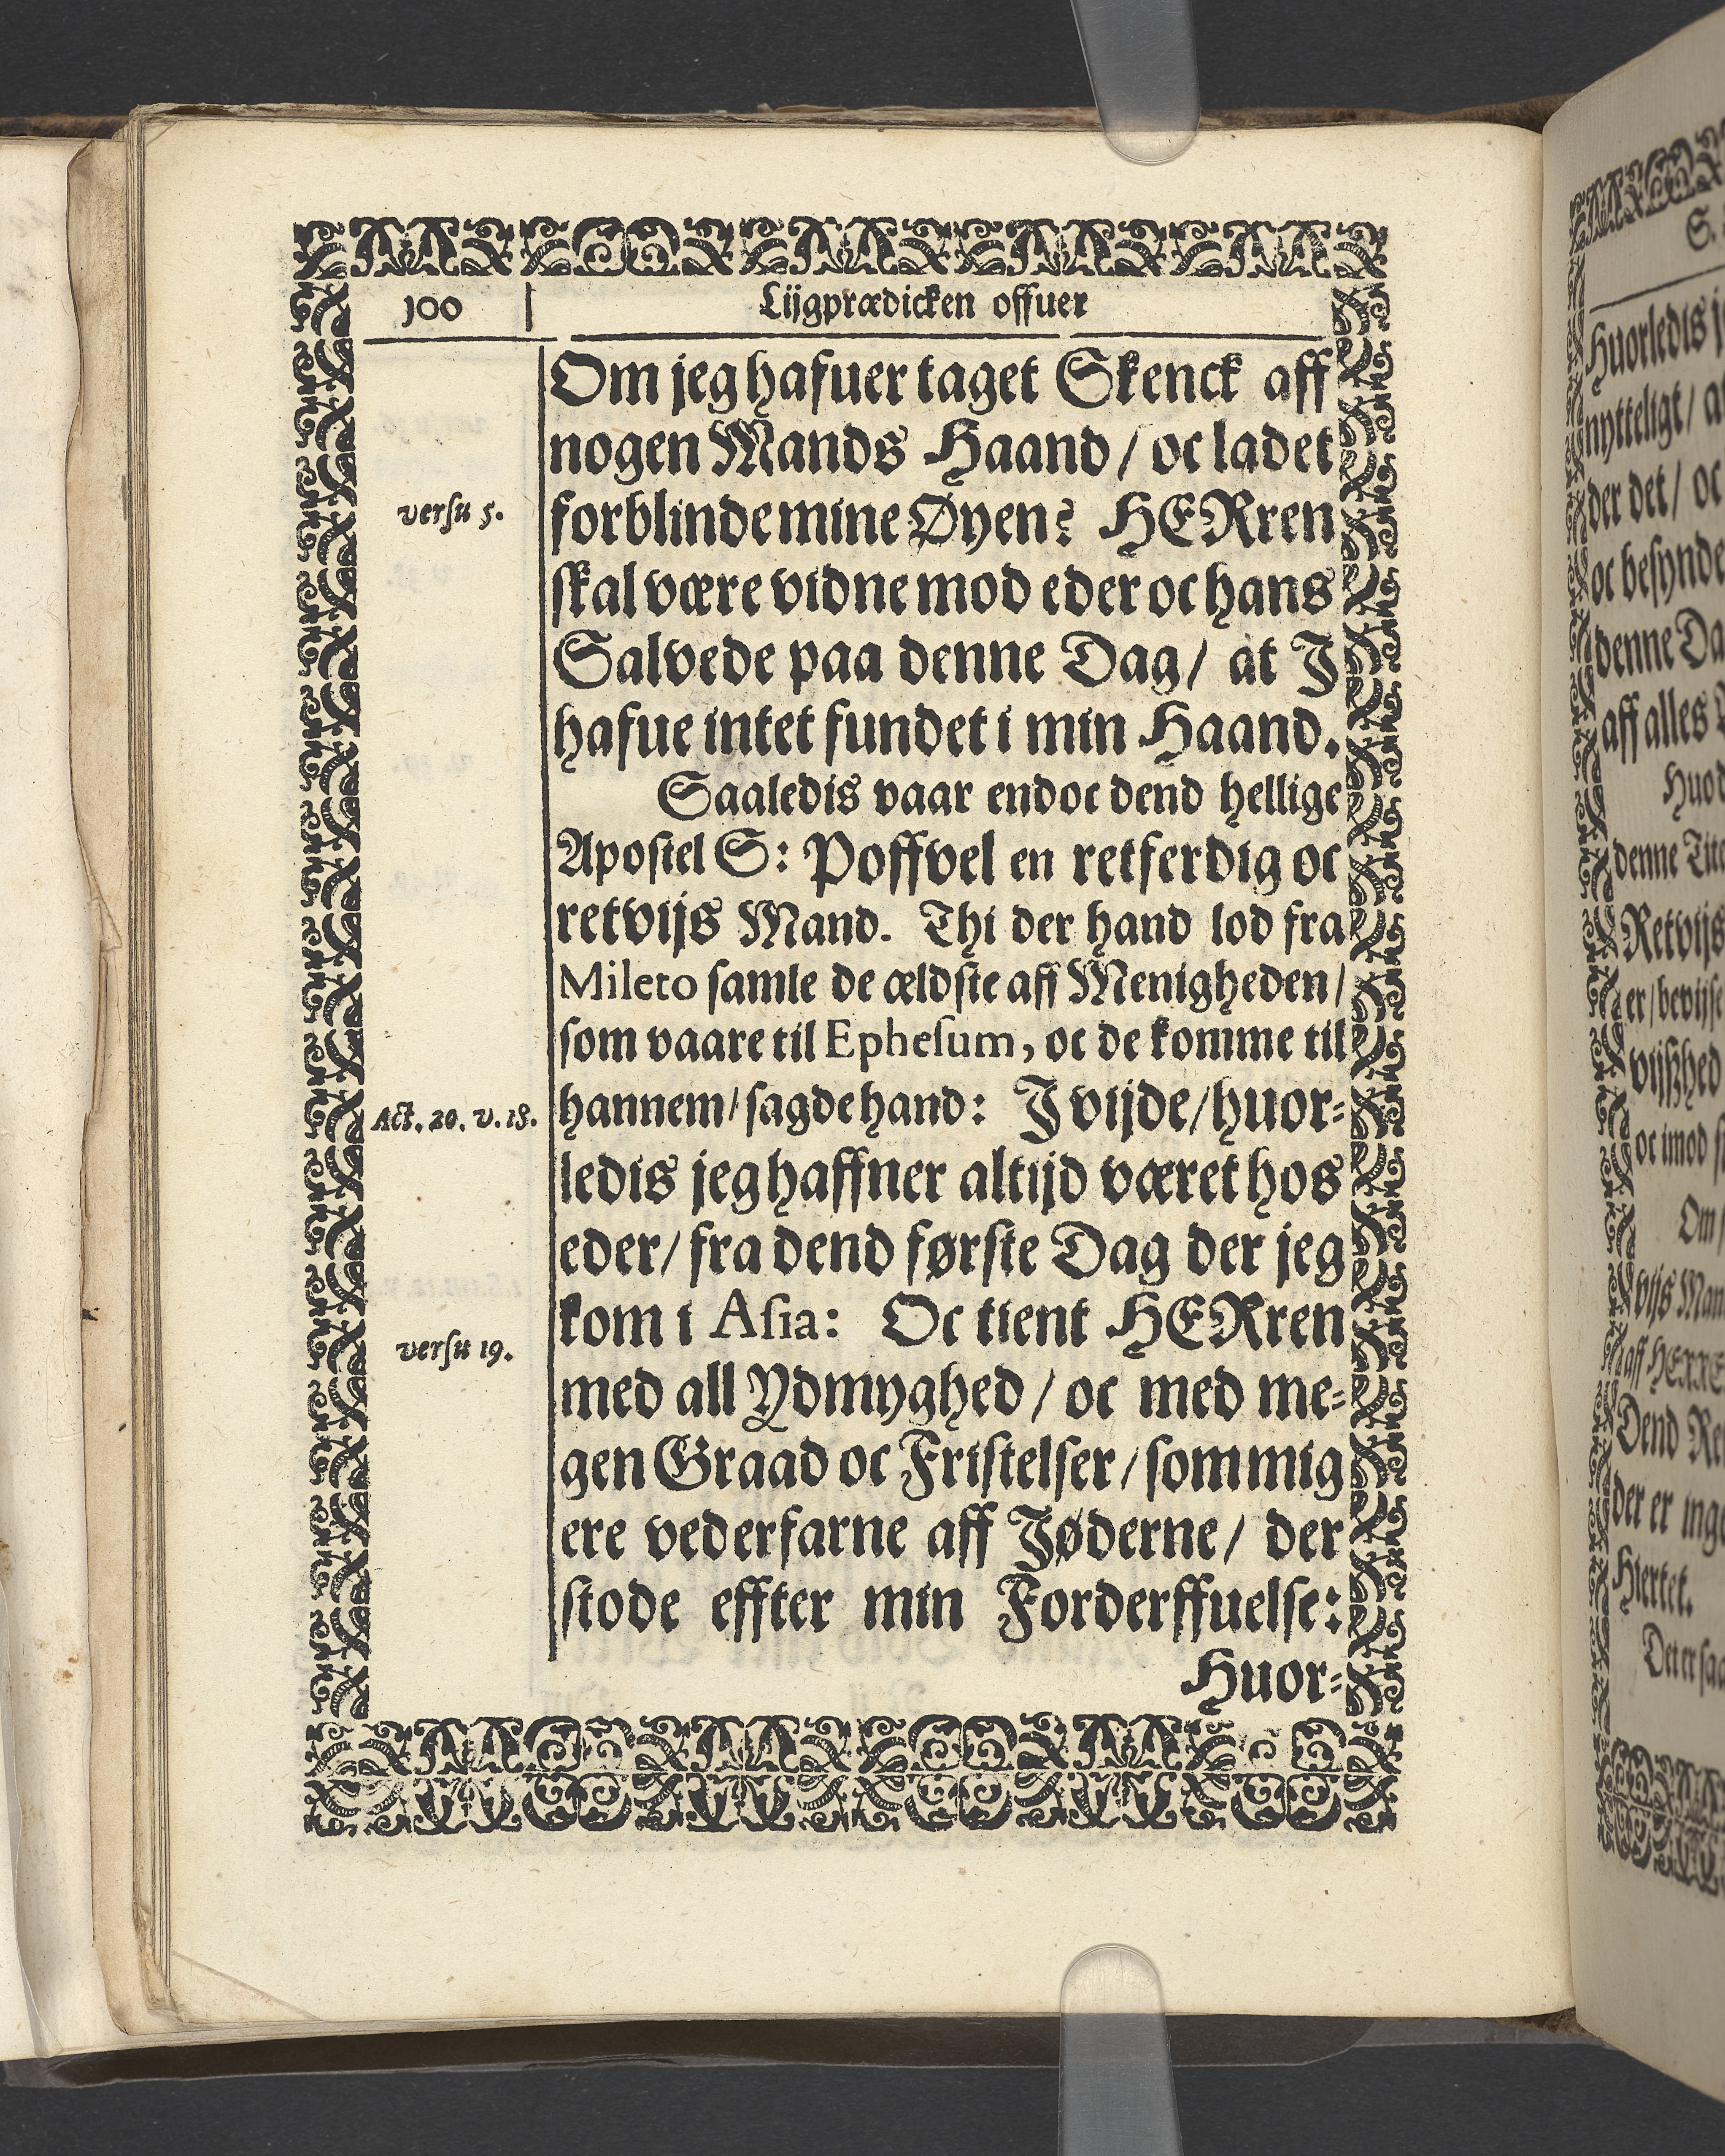 100
Lijgprædicken offuer
Om jeg hafuer taget Skenck aff
nogen Mands Haand / oc ladet
versu 5.
forblinde mine Øyen? HERren
skal være vidne mod eder oc hans
Salvede paa denne Dag / at J
hafue intet fundet i min Haand.
Saaledis vaar endoc dend hellige
Apostel S: Poffvel en retferdig oc
retvijs Mand. Thi der hand lod fra
Mileto samle de ældste aff Menigheden /
som vaare til Ephesum, oc de komme til
Act. 20. v. 18.
hannem / sagde hand: J vijde / huor-
ledis jeg haffner altijd været hos
eder / fra dend første Dag der jeg
kom i Asia: Oc tient HERren
versu 19.
med all Ydmyghed / oc med me-
gen Graad oc Fristelser / som mig
ere vederfarne aff Jøderne / der
stode effter min Forderffuelse:
Huor-
S.
Huorledis
nytteligt /
der det / oc
oc
denne
aff alles
denne
Retvijs
er /
oc imod
Om
vijs
aff
Dend
der er
Hiertet.
Det er